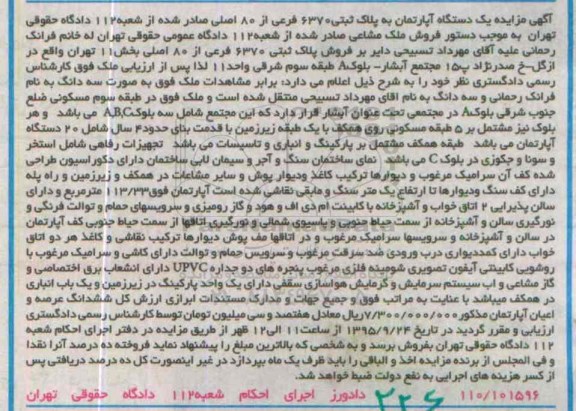 آگهی مزایده یک دستگاه آپارتمان به پلاک ثبتی ۶۳۷۰ فرعی از ۸۰ اصلی صادر شده از شعبه ۱۱۲ دادگاه حقوقی
تهران به موجب دستور فروش ملک مشاعی صادر شده از شعبه ۱۱۲ دادگاه عمومی حقوقی تهران له خانم فرانک
رحمانی علیه آقای مهرداد تسبیحی دایر بر فروش پلاک ثبتی ۶۳۷۰ فرعی از ۸۰ اصلی بخش ۱۱ تهران واقع در
ازگل-خ صدرنژاد پ۱۵ مجتمع آبشار- بلوک A طبقه سوم شرقی واحد ۱۱ لذا پس از ارزیابی ملک فوق کارشناس
رسمی دادگستری نظر خود را به شرح ذیل اعلام می دارد: برابر مشاهدات ملک فوق به صورت سه دانگ به نام
فرانک رحمانی و سه دانگ به نام آقای مهرداد تسبیحی منتقل شده است و ملک فوق در طبقه سوم مسکونی ضلع
جنوب شرقی بلوک A در مجتمعی تحت عنوان آبشار قرار دارد که این مجتمع شامل سه بلوک A,B,C می باشد و هر
بلوک نیز مشتمل بر ۵ طبقه مسکونی روی همکف با یک طبقه زیرزمین با قدمت بنای حدود ۴ سال شامل ۲۰ دستگاه
آپارتمان می باشد طبقه همکف مشتمل بر پارکینگ و انباری و تاسیسات می باشد تجهیزات رفاهی شامل استخر
و سونا و جکوزی در بلوک C می باشد نمای ساختمان سنگ و آجر و سیمان لابی ساختمان دارای دکوراسیون طراحی
شده کف آن سرامیک مرغوب و دیوارها ترکیب کاغذ ودیوار پوش و سایر مشاعات در همکف و زیرزمین و راه پله
دارای کف سنگ ودیوارها تا ارتفاع یک متر سنگ و مابقی نقاشی شده است آپارتمان فوق ۱۱۳/۳۳ مترمربع و دارای
سالن پذیرایی ۲ اتاق خواب و آشپزخانه با کابینت ام دی اف و هود و گاز رومیزی و سرویسهای حمام و توالت فرنگی و
نورگیری سالن و آشپزخانه از سمت حیاط جنوبی و پاسیوی شمالی و نورگیری اتاقها از سمت حیاط جنوبی کف آپارتمان
در سالن و آشپزخانه و سرویسها سرامیک مرغوب و در اتاقها کف پوش دیوارها ترکیب نقاشی و کاغذ هر دو اتاق
خواب دارای کمددیواری درب ورودی ضد سرقت مرغوب و سرویس حمام و توالت دارای کاشی و سرامیک مرغوب با
روشویی کابینتی آیفون تصویری شومینه فلزی مرغوب پنجره های دو جداره UPVC دارای انشعاب برق اختصاصی و
گاز مشاعی و اب سیستم سرمایش و گرمایش هواسازی سقفی دارای یک واحد پارکینگ در زیرزمین و یک باب انباری
در همکف میباشد با عنایت به مراتب فوق و جمیع جهات و مدارک مستندات ابرازی ارزش کل ششدانگ عرصه و
اعیان آپارتمان مذکور ۷/۳۰۰/۰۰۰/۰۰۰ ریال معادل هفتصد و سی میلیون تومان توسط کارشناس رسمی دادگستری
ارزیابی و مقرر گردید در تاریخ ۱۳۹۵/۹/۲۴ از ساعت ۱۱ الی ۱۲ ظهر از طریق مزایده در دفتر اجرای احکام شعبه
۱۱۲ دادگاه حقوقی تهران بفروش برسد و به شخصی که بالاترین مبلغ را پیشنهاد نماید فروخته ده درصد آنرا نقدا
و فی المجلس از برنده مزایده اخذ و الباقی را باید ظرف یک ماه بپردازد در غیر اینصورت کل ده درصد دریافتی پس
از کسر هزینه های اجرایی به نفع دولت ضبط خواهد شد.
۱۱۰/۱۰۱۵۹۶ دادورز اجرای احکام شعبه ۱۱۲ دادگاه حقوقی تهران